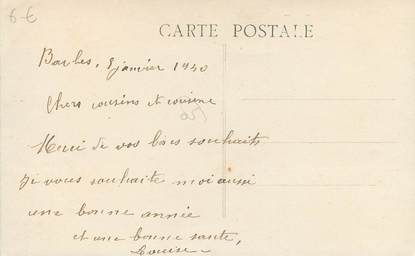 6 €
CARTE POSTALE
Barles, 8 janvier 1940
Chers cousins et cousine
Merci de vos bons souhaits
Je vous souhaite moi aussi
une bonne année
et une bonne santé,
Louise